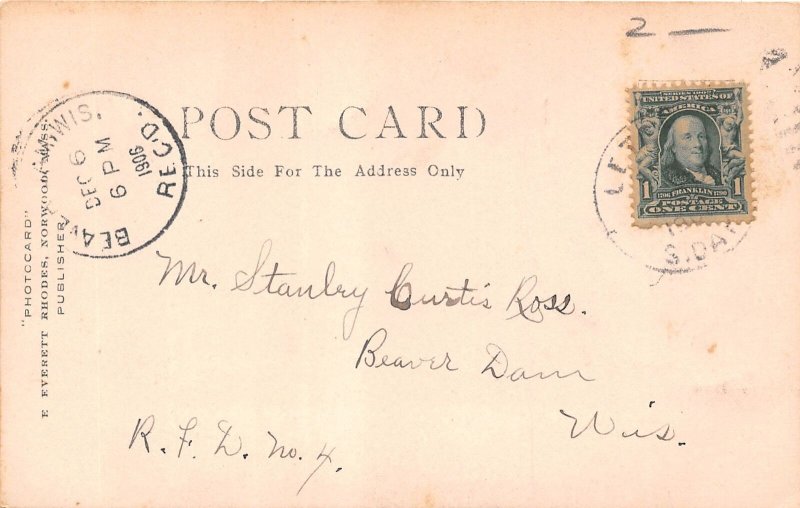 2 —
POST CARD
This Side For The Address Only
SERIES 1902
UNITED STATES OF
AMERICA
1 1706 FRANKLIN 1790 1
POSTAGE
ONE CENT
S.DAK
BEAVER WIS.
DEC 6
6 PM
1906
REC'D.
"PHOTOCARD"
E EVERETT RHODES, NORWOOD, MASS.
PUBLISHER
Mr. Stanley Curtis Ross.
Beaver Dam
Wis.
R. F. D. No. 4.